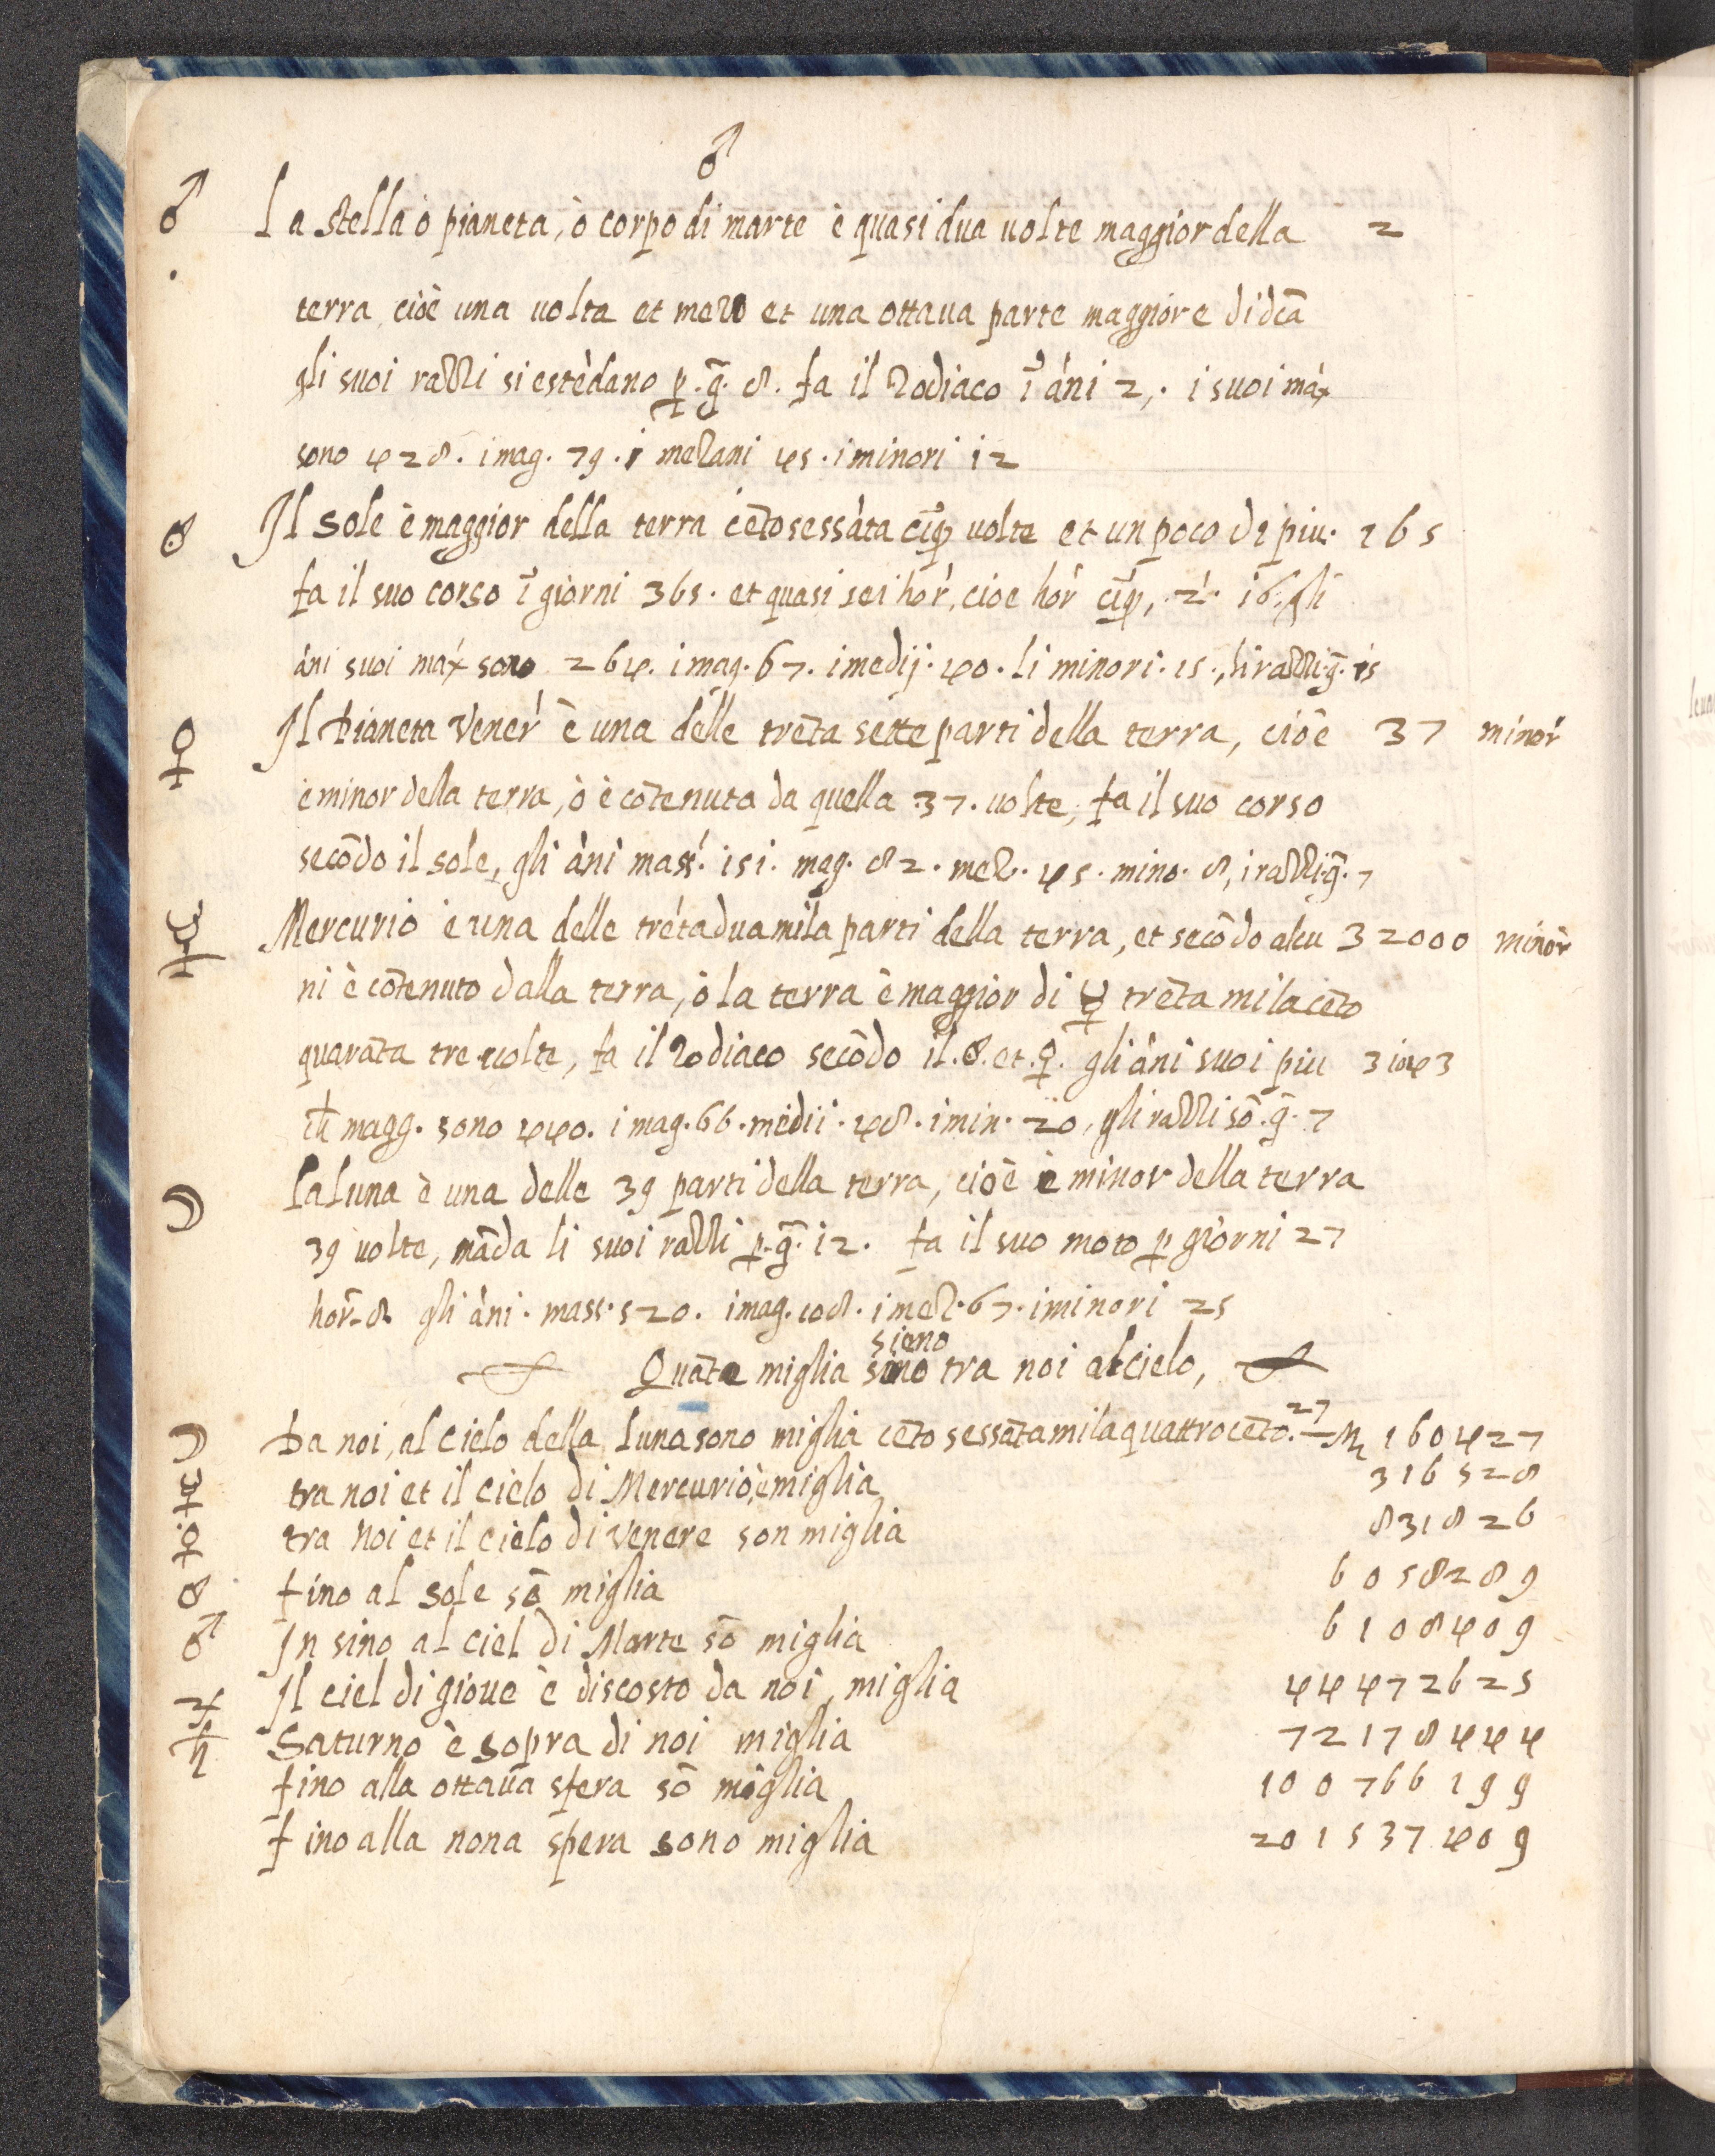 ♂
♂ La stella ò pianeta, ò corpo di marte è quasi dua uolte maggior della 2
terra cioè una uolta et mezo et una ottaua parte maggiore di dcā
gli suoi razzi si estèdano p. g̃. 8. fa il zodiaco ī áni 2,. i suoi máx
sono 428. i mag. 79. i mezani 45. i minori 12
☉ Il Sole è maggior della terra cētosessàta cīq uolte et un poco di piu. 165
fa il suo corso ī giorni 365. et quasi sei hor', cioe hor' cīq, 2. 16. gli
áni suoi máx sono 264. i mag. 67. i medij. 40. li minori. 15., li razzi. g̃. 15
♀ Il Pianeta Vener' è una delle trēta sette parti della terra, cioè 37 minor'
è minor della terra, ò è cōtenuta da quella 37. uolte, fa il suo corso
secōdo il sole, gli àni mass'. 151. mag. 82. mez. 45. mino. 8, i razzi. g̃. 7
☿ Mercurio è una delle trétaduamila parti della terra, et secōdo alcu 32000 minòr
ni è cōtenuto dalla terra, ò la terra è maggior di ☿ trēta mila cēto
quarāta tre uolte, fa il zodiaco secōdo il. ☉. et. ♀. gli áni suoi piu 30143
magg. sono 440. i mag. 66. medii. 48. i min. 20, gli razzi sō. g̃. 7
☽ La Luna è una delle 39 parti della terra, cioè è minor della terra
39 uolte, māda li suoi razzi p. g̃. 12. fa il suo moto p giorni 27
hor̃. 8. gli àni. mass. 520. i mag. 108. i mez. 67. i minori 25
sieno
Quāte miglia sino tra noi al cielo,
27
☽ Da noi, al cielo della Luna sono miglia cēto sessātamila quattrocēto. M 160427
☿ tra noi et il cielo di Mercurio, è miglia 316528
♀ tra noi et il cielo di Venere son miglia 831826
☉ fino al Sole sō miglia 6058289
♂ In sino al ciel di Marte sō miglia 6108409
♃ Il ciel di gioue è discosto da noi, miglia 44472625
♄ Saturno è sopra di noi miglia 72178444
fino alla ottaua sfera sō miglia 100766199
fino alla nona spera sono miglia 201537409